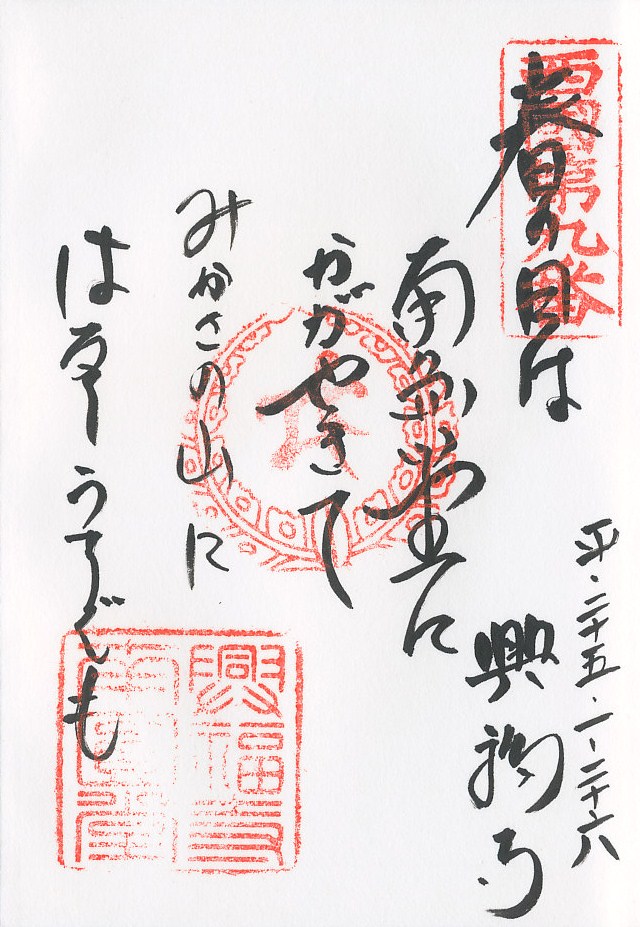 西国第九番
春の日は
南円堂に
かがやきて
みかさの山に
はるゝうすぐも
平・二十五・一・二十六
興福寺
興福寺
南圓堂